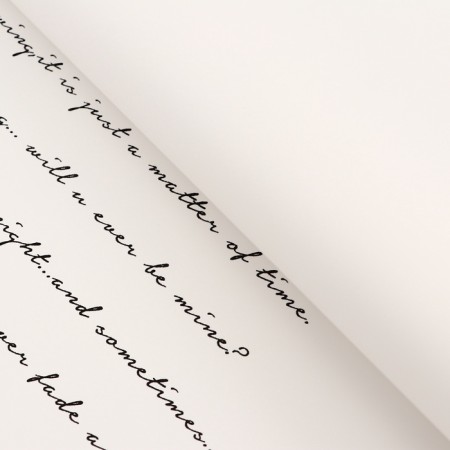 it is just a matter of time.
... will u ever be mine?
...and sometimes..
fade a